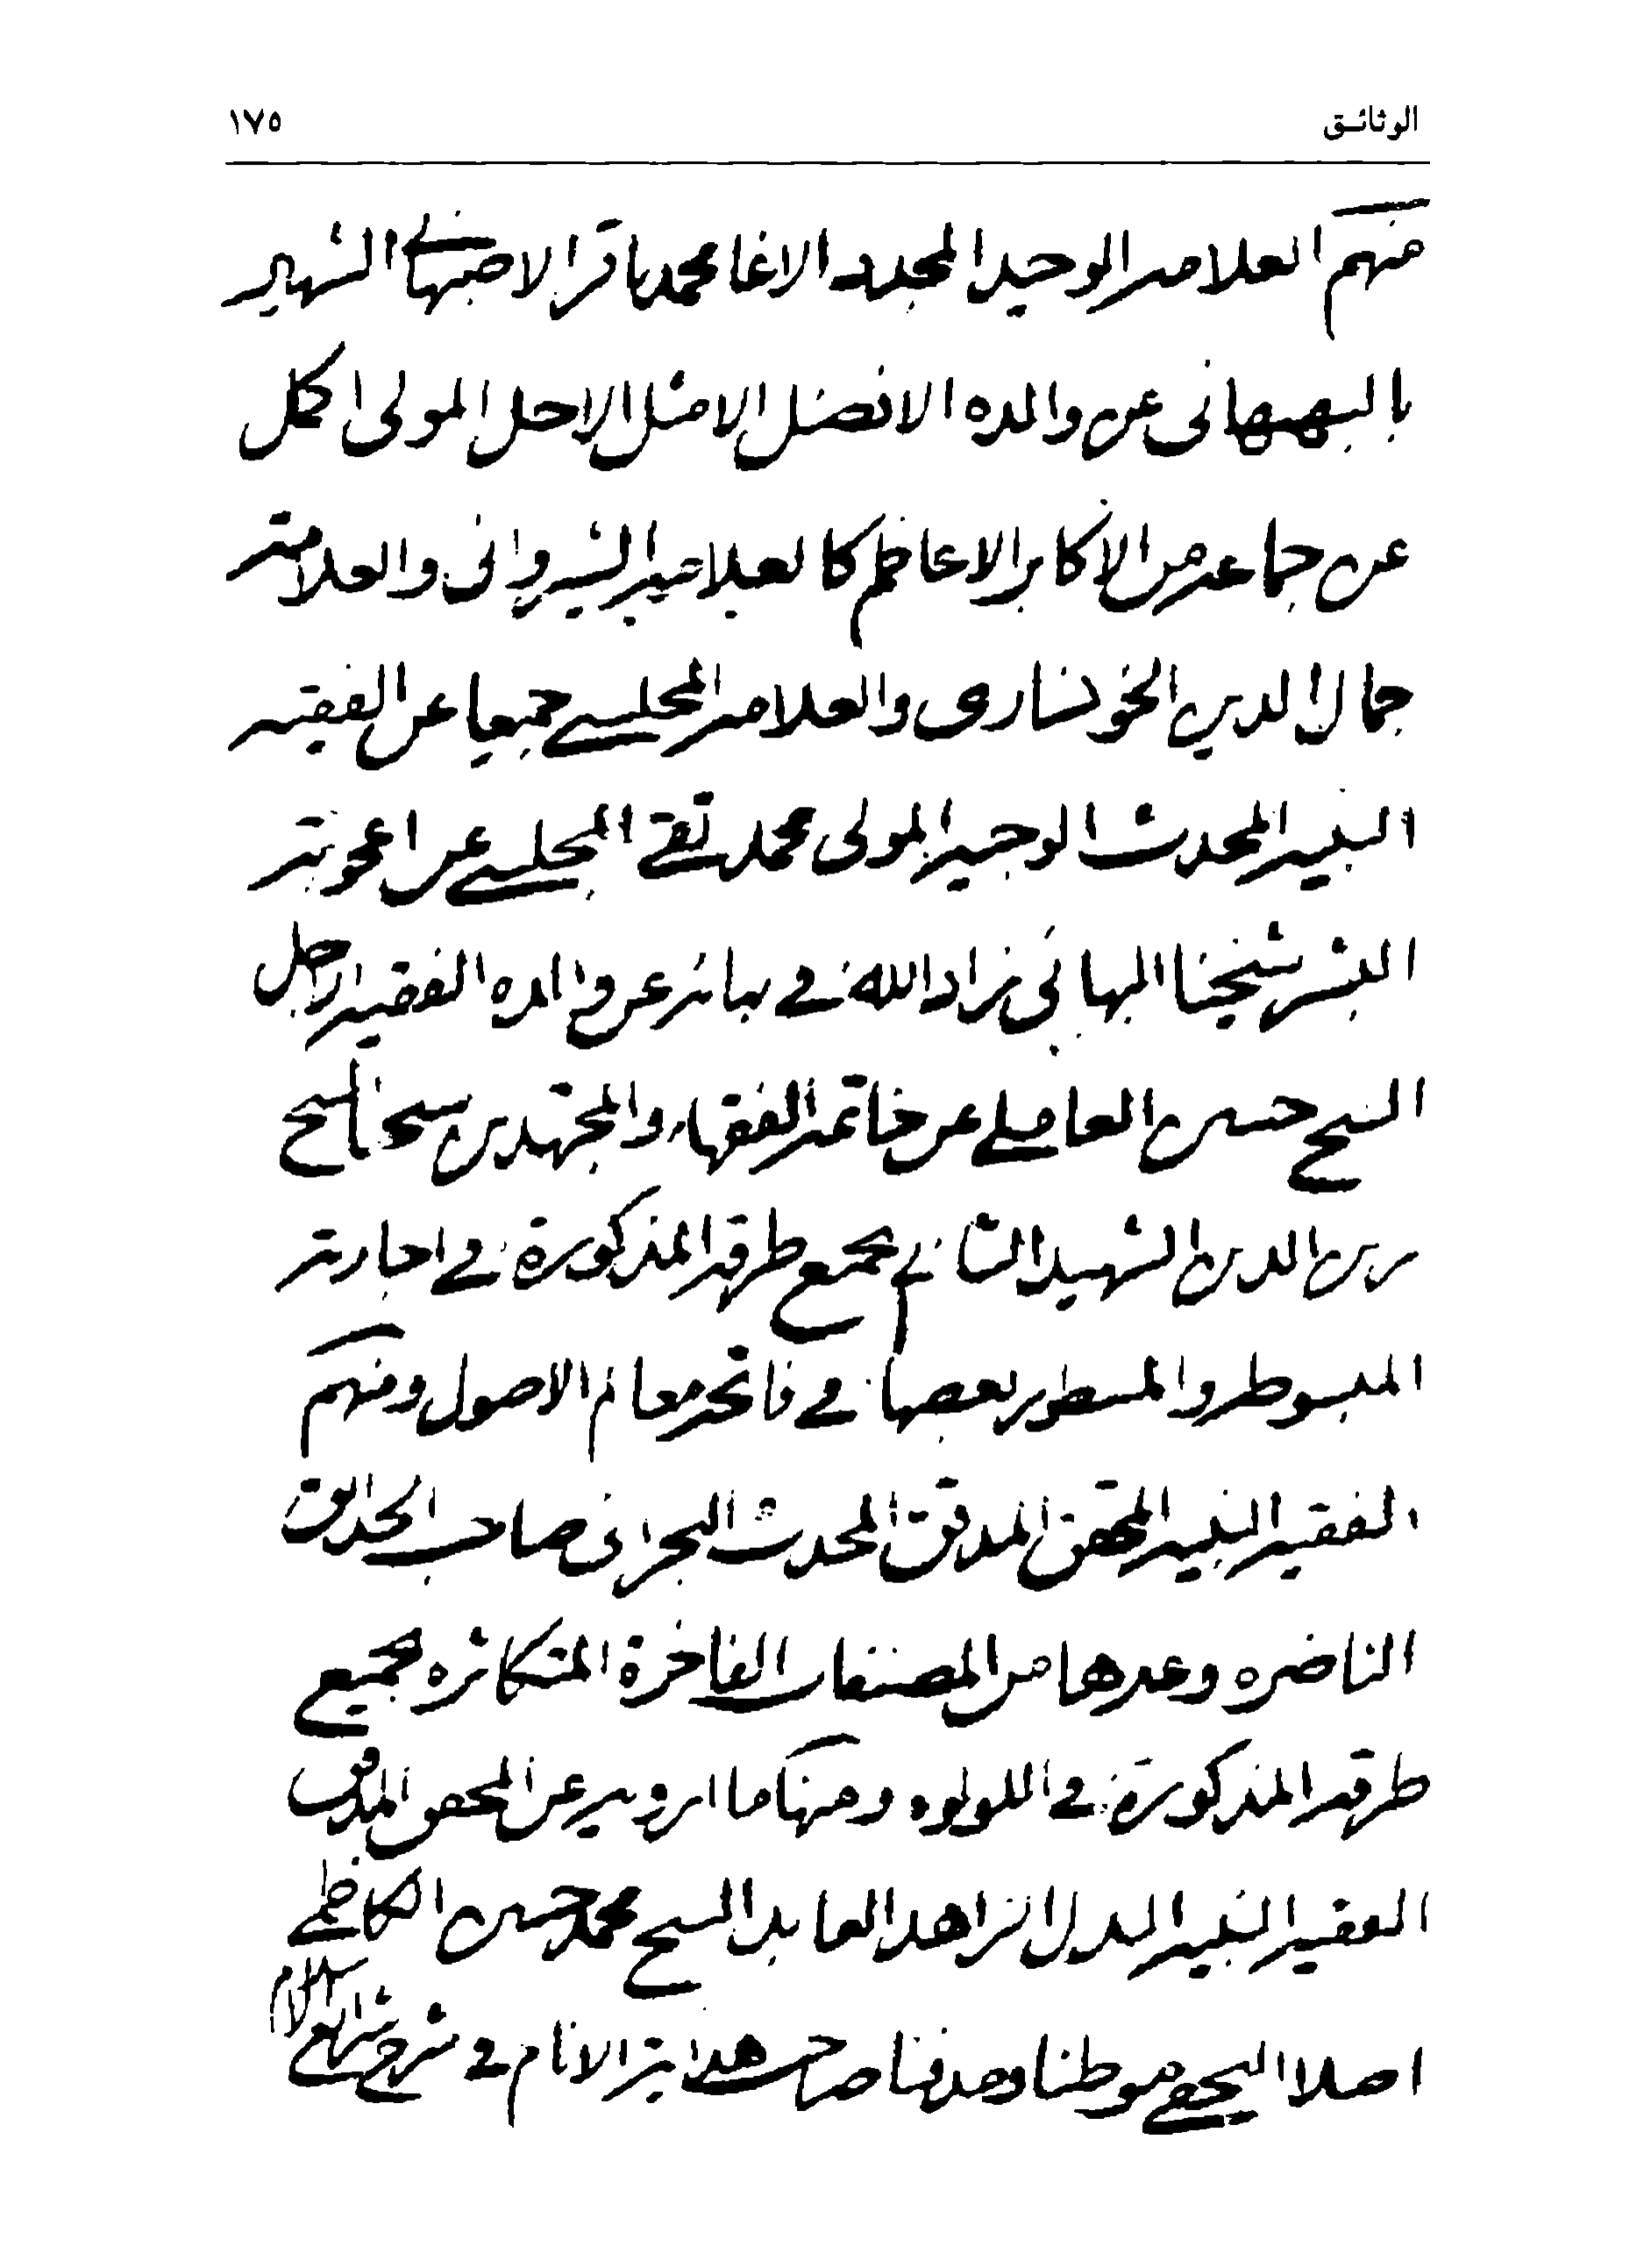 الوثائق
١٧٥
منهم العلامة الوحيد المجدد الاغا محمد باقر الاصبهاني الشهير
بالبهبهاني عن والده الافضل الامثل الاجل المولى اكمل
عن جماعة من الاكابر الاعاظم كالعلامة الشيرواني والعلامة
جمال الدين الخونساري والعلامة المجلسي جميعا عن الفقيه
النبيه المحدث الوجيه المولى محمد تقي المجلسي عن اعجوبة
البشر شيخنا البهائي زاد الله في بهائه عن والده الفقيه الاجل
الشيخ حسين العاملي عن خاتمة الفقهاء والمجتهدين شيخنا الشيخ
زين الدين الشهيد الثاني بجميع طرقه المذكورة في اجازته
المبسوطة والمسطور بعضها في فاتحة معالم الاصول ومنهم
الفقيه النبيه المحقق المدقق المحدث البحراني صاحب الحدائق
الناضره وغيرها من المصنفات الفاخرة المتكاثره بجميع
طرقه المذكورة في اللولوه ومنها ما ارويه عن المحقق المدقق
الفقيه النبيه البدل الزاهد العابد الشيخ محمد حسين الكاظمي
اصلا النجفي موطنا ومدفنا صاحب هداية الانام في شرح شرائع الاسلام